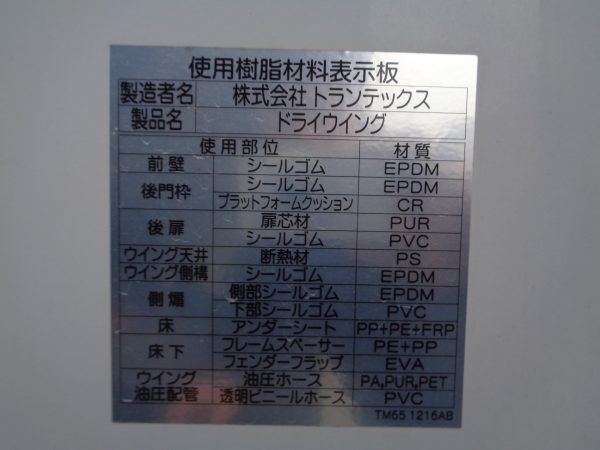 使用樹脂材料表示板
製造者名 株式会社トランテックス
製品名 ドライウイング
使用部位 材質
前壁 シールゴム EPDM
後門枠 シールゴム EPDM
プラットフォームクッション CR
後扉 扉芯材 PUR
シールゴム PVC
ウイング天井 断熱材 PS
ウイング側構 シールゴム EPDM
側煽 側部シールゴム EPDM
下部シールゴム PVC
床 アンダーシート PP+PE+FRP
床下 フレームスペーサー PE+PP
フェンダーフラップ EVA
ウイング 油圧ホース PA,PUR,PET
油圧配管 透明ビニールホース PVC
TM65 1216AB